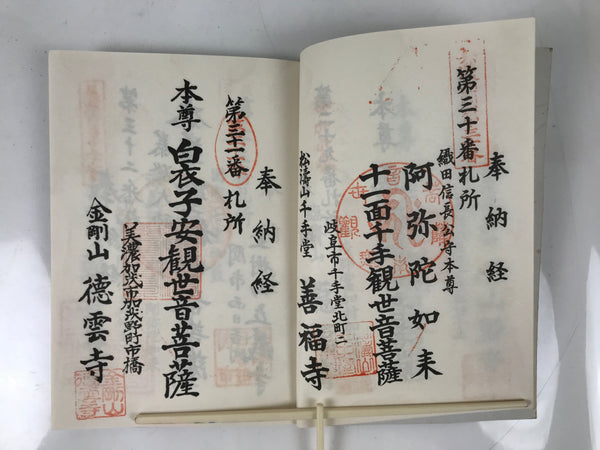 奉納経
第三十番札所
織田信長公守本尊
阿弥陀如来
十一面千手観世音菩薩
岐阜市千手堂北町二
松濤山千手堂
善福寺
奉納経
第三十一番札所
本尊白衣子安観世音菩薩
美濃加茂市加茂野町市橋
金剛山徳雲寺